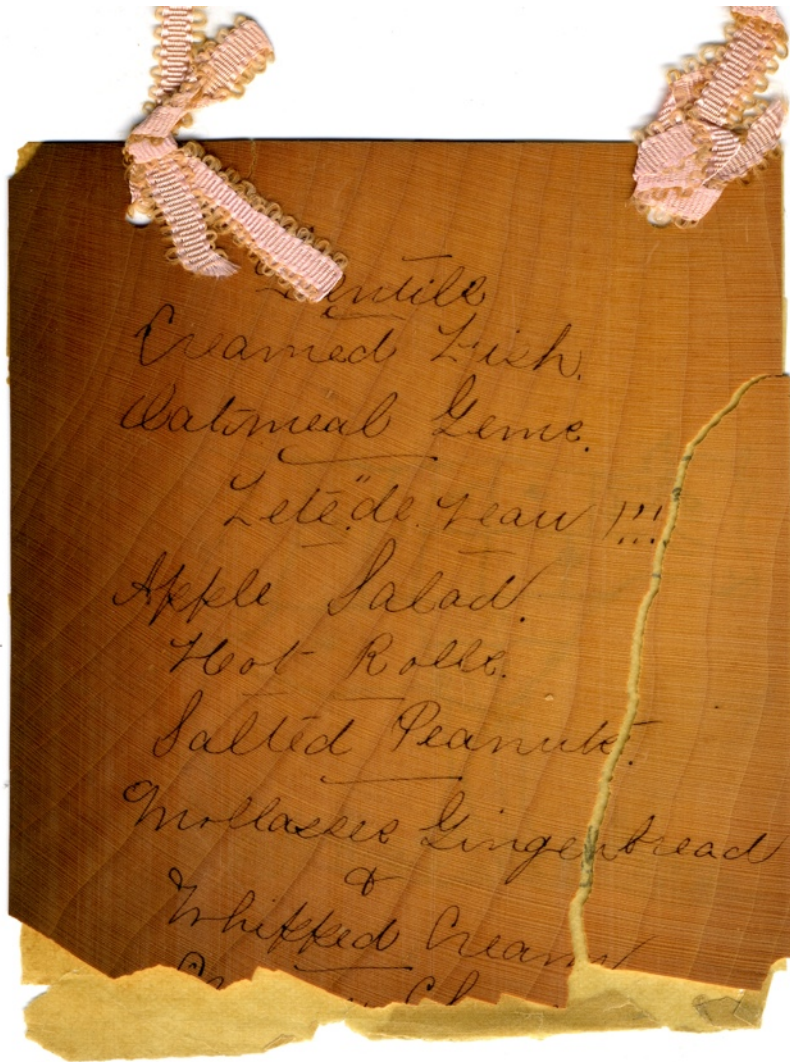 Creamed Fish.
Oatmeal Gems.
Tete "de. Veau !!!
Apple Salad.
Hot Rolls.
Salted Peanuts.
Mollasses Gingerbread
&
Whipped Cream